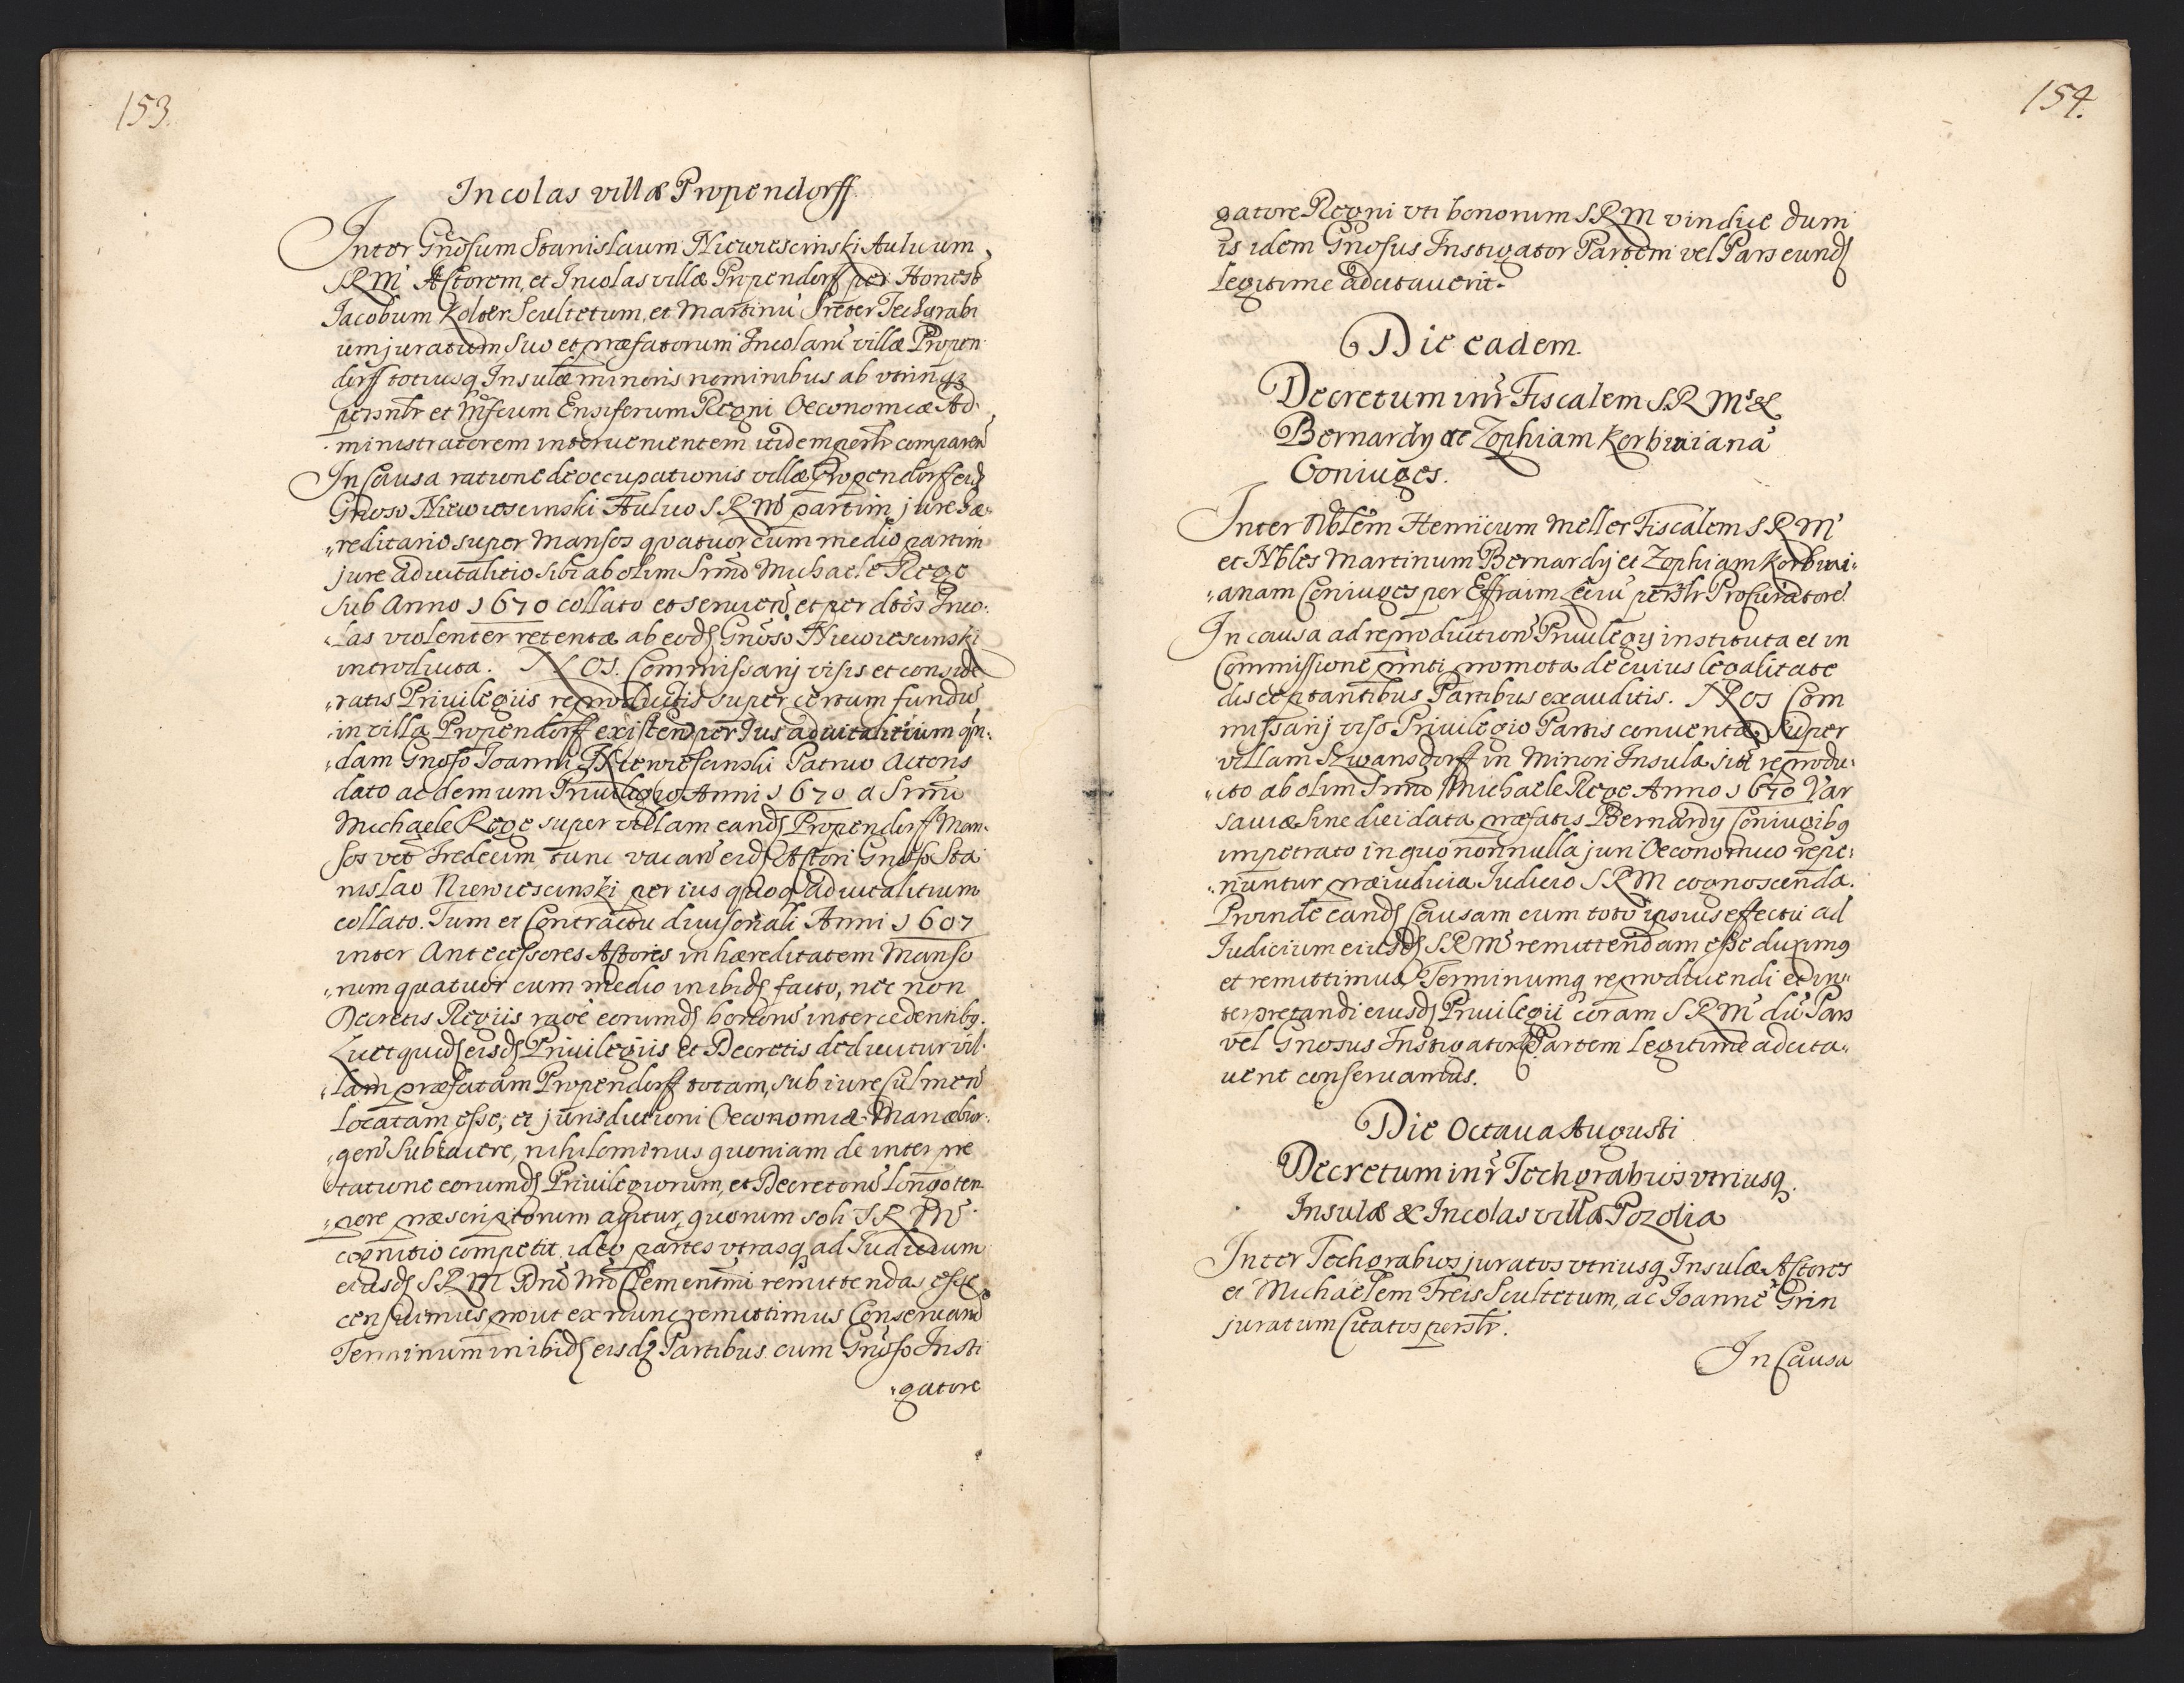 153.
Incolas villæ Propendorff
Inter Gnosum Stanislaum Niewiescinski Aulicum
SRM Actorem, et Incolas villæ Propendorff per Honest
Jacobum Kolter Scultetum, et Martinu Treter Techgrabi
um juratum suo et præfatorum Incolaru villæ Propen
dorff totiusq Insulæ minoris nominibus ab vtrinqz
persnlr et Mfcum Ensiferum Regni Oeconomiæ Ad
ministratorem interuenientem itidem persnlr comparen
In Causa ratione deoccupationis villæ Propendorff eid
Gnoso Niewiescinski Aulico SRM partim jure hæ-
reditario super Mansos qvatuor cum medio partim
jure aduitalitio sibi ab olim Srmo Michaele Rege
sub Anno 1670 collato et seruien, et per dtos Inco-
las violenter retentæ ab eod Gnoso Niewiescinski
introducta. NOS. Commissarij visis et conside
ratis Priuilegiis reproductis super certum fundu
in villa Propendorff existen per Jus aduitalitium qn-
dam Gnoso Joanni Niewiescinski Patruo Actoris
dato ac demum Priuilegio Anni 1670 a Srmo
Michaele Rege super villam eand Propendorff Man-
sos vet Tredecim tunc vacan eid Actori Gnoso Sta
nislao Niewiescinski per ius quoq aduitalitium
collato. Tum et Contractu diuisionali Anni 1607
inter Antecessores Actoris in hæreditatem Manso
rum quatuor cum medio inibid facto, nec non
Decretis Regiis raoe eorumd bonoru intercedentibq.
Licet quid eisd Priuilegiis et Decretis deducitur vil-
lam præfatam Propendorff totam, sub iure Culmen
locatam esse, et jurisdictioni Oeconomiæ Mariæbur-
gen subiacere, nihilominus quoniam de interpre
tatione eorumd Priuilegiorum, et Decretoru longo tem
pore præscriptorum agitur, quorum soli SRM
cognitio competit ideo partes vtrasq ad Judicium
eiusd SRM Dni Nri Clementmi remittendas esse
censuimus prout ex nunc remittimus Conseruand
Terminum inibid eisdz Partibus cum Gnoso Insti
gatore
154.
gatore Regni vti bonorum SRM vindice dum
is idem Gnosus Instigator Partem vel Pars eund
legitime adcitauerit.
Die eadem.
Decretum intr Fiscalem SRMs &
Bernardy ac Zophiam Korbiniana
Coniuges.
Inter Nblem Henricum Meller Fiscalem SRM
et Nbles Martinum Bernardy et Zophiam Korbini-
anam Coniuges per Effraim Leru persnlr Procuratore
In causa ad reproduction Priuilegij instituta et in
Commissione pnti promota de cuius legalitate
disceptantibus Partibus exauditis. NOS Com
missarij viso Priuilegio Partis conuentæ super
villam Szwansdorff in Minori Insula sita reprodu-
cto ab olim Srmo Michaele Rege Anno 1670 Var
sauiæ sine diei data præfatis Bernardy Coniugibq
impetrato in quo nonnulla juri Oeconomico repe-
riuntur præiudicia Judicio SRM cognoscenda.
Proinde eand Causam cum toto ipsius effectu ad
Judicium eiusd SRM remittendam esse duximq
et remittimus Terminumq reproducendi et in-
terpretandi eiusd Priuilegii coram SRM du Pars
vel Gnosus Instigator Partem legitime adcita-
uerit conseruamus.
Die Octaua Augusti
Decretum intr Techgrabios vtriusq.
Insulæ & Incolas villæ Pozolia
Inter Techgrabios juratos vtriusq Insulæ Actores
et Michaelem Freis Scultetum, ac Joanne Grin
juratum Citatos persnlr.
In Causa